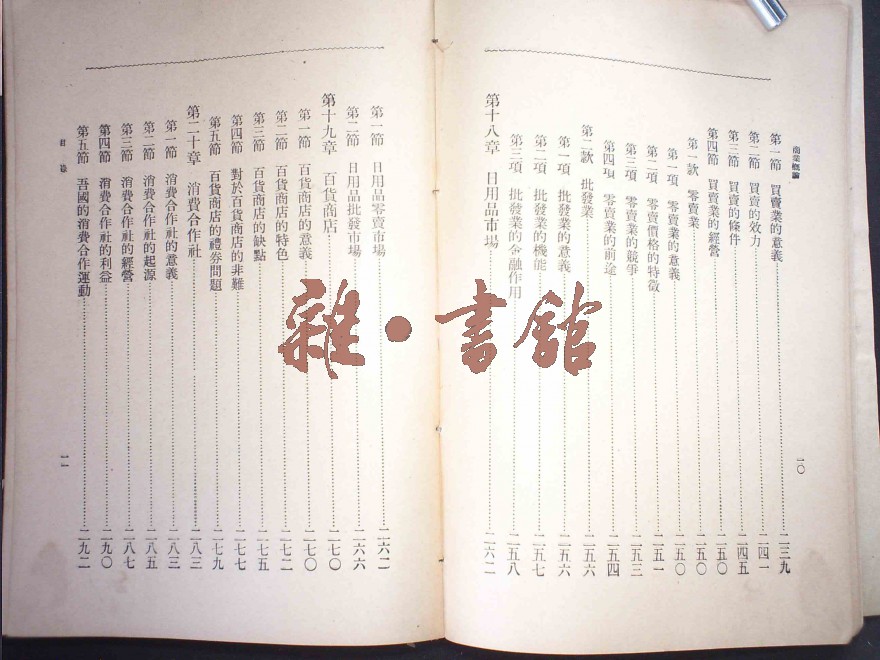 商業概論
一〇
第一節 買賣業的意義 二三九
第二節 買賣的效力 二四一
第三節 買賣的條件 二四五
第四節 買賣業的經營 二五〇
第一款 零賣業 二五〇
第一項 零賣業的意義 二五〇
第二項 零賣價格的特徵 二五一
第三項 零賣業的競爭 二五三
第四項 零賣業的前途 二五四
第二款 批發業 二五六
第一項 批發業的意義 二五六
第二項 批發業的機能 二五七
第三項 批發業的金融作用 二五八
第十八章 日用品市場 二六二
第一節 日用品零賣市場 二六二
第二節 日用品批發市場 二六六
第十九章 百貨商店 二七〇
第一節 百貨商店的意義 二七〇
第二節 百貨商店的特色 二七二
第三節 百貨商店的缺點 二七五
第四節 對於百貨商店的非難 二七七
第五節 百貨商店的禮券問題 二七九
第二十章 消費合作社 二八三
第一節 消費合作社的意義 二八三
第二節 消費合作社的起源 二八五
第三節 消費合作社的經營 二八七
第四節 消費合作社的利益 二九〇
第五節 吾國的消費合作運動 二九二
目錄
一一
雜·書館